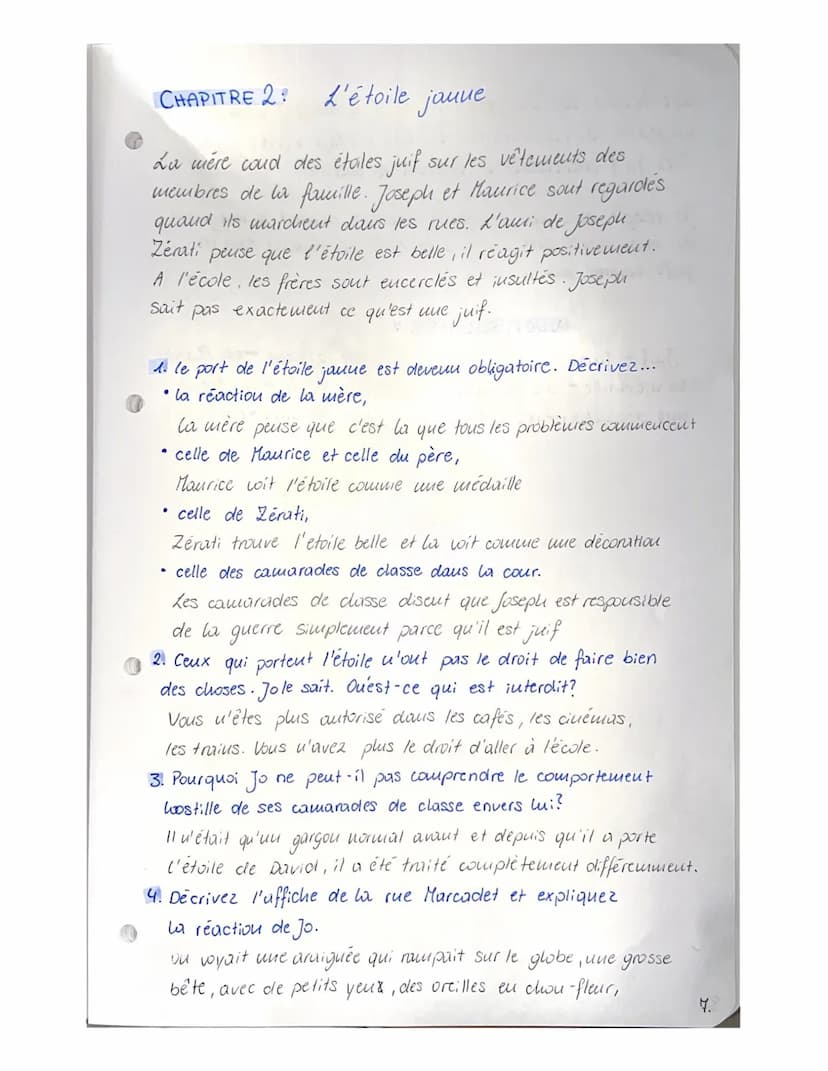 CHAPITRE 2: L'étoile jaune
La mère coud des étoles juif sur les vêtements des
membres de la famille. Joseph et Maurice sont regardés
quand ils marchent dans les rues. L'ami de Joseph
Zérati pense que l'étoile est belle, il réagit positivement.
A l'école, les frères sont encerclés et insultés. Joseph
sait pas exactement ce qu'est une juif.
1. le port de l'étoile jaune est devenu obligatoire. Décrivez...
• la réaction de la mère,
La mère pense que c'est la que tous les problèmes commencent
• celle de Maurice et celle du père,
Maurice voit l'étoile comme une médaille
• celle de Zérati,
Zérati trouve l'etoile belle et la voit comme une décoration
• celle des camarades de classe dans la cour.
Les camarades de classe disent que Joseph est responsible
de la guerre simplement parce qu'il est juif
2. Ceux qui portent l'étoile n'ont pas le droit de faire bien
des choses. Jo le sait. Qu'est-ce qui est interdit?
Vous n'êtes plus autorisé dans les cafés, les cinémas,
les trains. Vous n'avez plus le droit d'aller à l'école.
3. Pourquoi Jo ne peut-il pas comprendre le comportement
hostille de ses camarades de classe envers lui?
Il n'était qu'un garçon normal avant et depuis qu'il a porte
l'étoile de David, il a été traité complètement différemment.
4. Décrivez l'affiche de la rue Marcadet et expliquez
la réaction de Jo.
on voyait une araignée qui rampait sur le globe, une grosse
bête, avec de petits yeux, des oreilles en chou-fleur,
7.